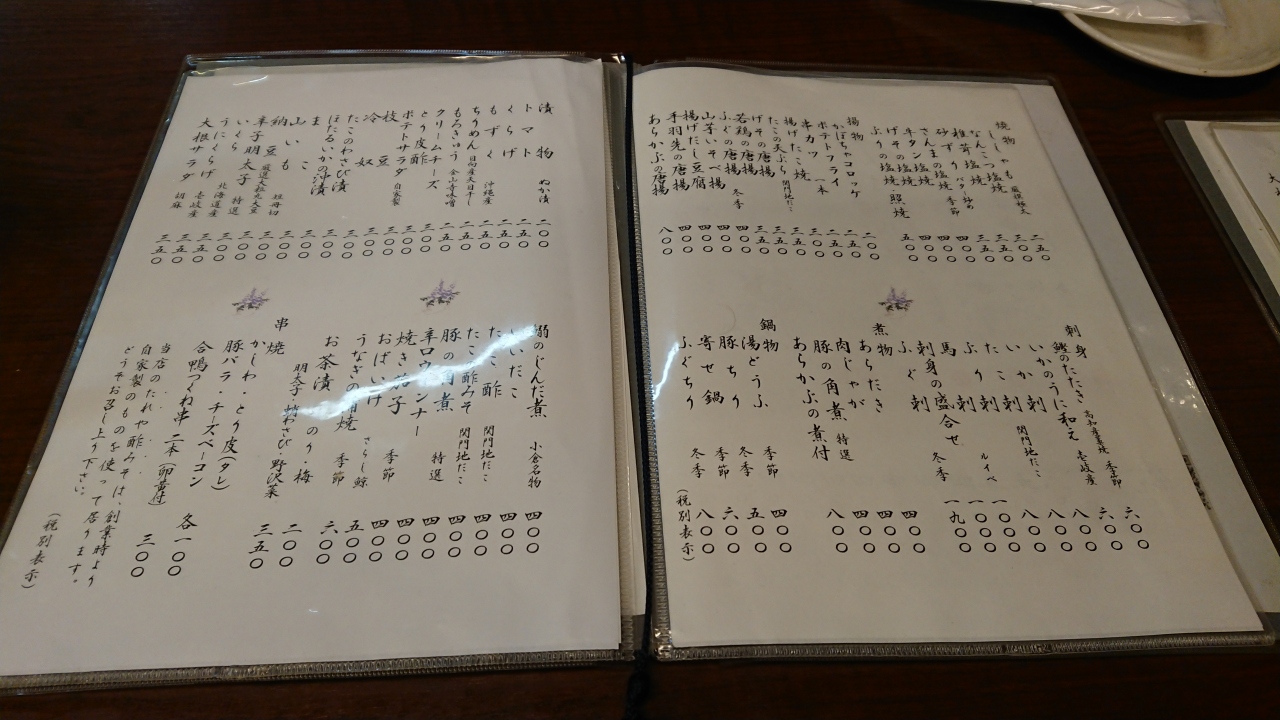 焼物
ししゃも 厳選極太 二五〇
なんこつ塩焼 三〇〇
椎茸塩焼 三五〇
砂ずり バター炒め 三五〇
さんまの塩焼 季節 四〇〇
牛タン塩焼 四〇〇
げその塩焼 四〇〇
ぶりの塩焼・照焼 五〇〇
揚物
かぼちゃコロッケ 二〇〇
ポテトフライ 二五〇
串カツ 一本 二〇〇
揚げたこ焼 三〇〇
たこの天ぷら 関門地だこ 三五〇
げその唐揚 三五〇
若鶏の唐揚 三五〇
ふぐの唐揚 冬季 四〇〇
山芋いそべ揚 四〇〇
揚げだし豆腐 四〇〇
手羽先の唐揚 四〇〇
あらかぶの唐揚 八〇〇
刺身
鰹のたたき 高知産藁焼 季節 六〇〇
いかのうに和え 壱岐産 六〇〇
いか刺 八〇〇
たこ刺 関門地だこ 八〇〇
ぶり刺
馬刺 ルイベ
刺身の盛合せ
ふぐ刺 冬季
煮物
あらだき 四〇〇
肉じゃが 四〇〇
豚の角煮 特選 四〇〇
あらかぶの煮付 八〇〇
鍋物
湯どうふ 季節 四〇〇
豚ちり 冬季 五〇〇
寄せ鍋 季節 八〇〇
ふぐちり 冬季 八〇〇
(税別表示)
漬物 ぬか漬 二〇〇
トマト
くらげ
もずく 沖縄産
ちりめん 日向産天日干し
もろきゅう 金山寺味噌
クリームチーズ
とり皮酢
ポテトサラダ 自家製
枝豆
冷奴
たこのわさび漬
ほたるいかの沖漬
山いも 短冊切
納豆 厳選大粒丸大豆
辛子明太子 特選
いくら 北海道産
うにくらげ 壱岐産
大根サラダ 胡麻
鰯のじんだ煮 小倉名物 四〇〇
いいだこ 四〇〇
たこ酢 関門地だこ 四〇〇
たこ酢みそ 関門地だこ 四〇〇
豚の角煮 特選 四〇〇
辛口ウインナー 四〇〇
焼き茄子 季節 四〇〇
おばいけ さらし鯨 四〇〇
うなぎの蒲焼 季節 五〇〇
お茶漬 のり・梅 六〇〇
明太子・鮭わさび・野沢菜
串焼
かしわ・とり皮(タレ) 二〇〇
豚バラ・チーズベーコン 三五〇
合鴨つくね串 二本(卵黄付)
各一〇〇
三〇〇
当店のたれや酢みそは、創業時より
自家製のものを使って居ります。
どうぞお召し上り下さい。
(税別表示)